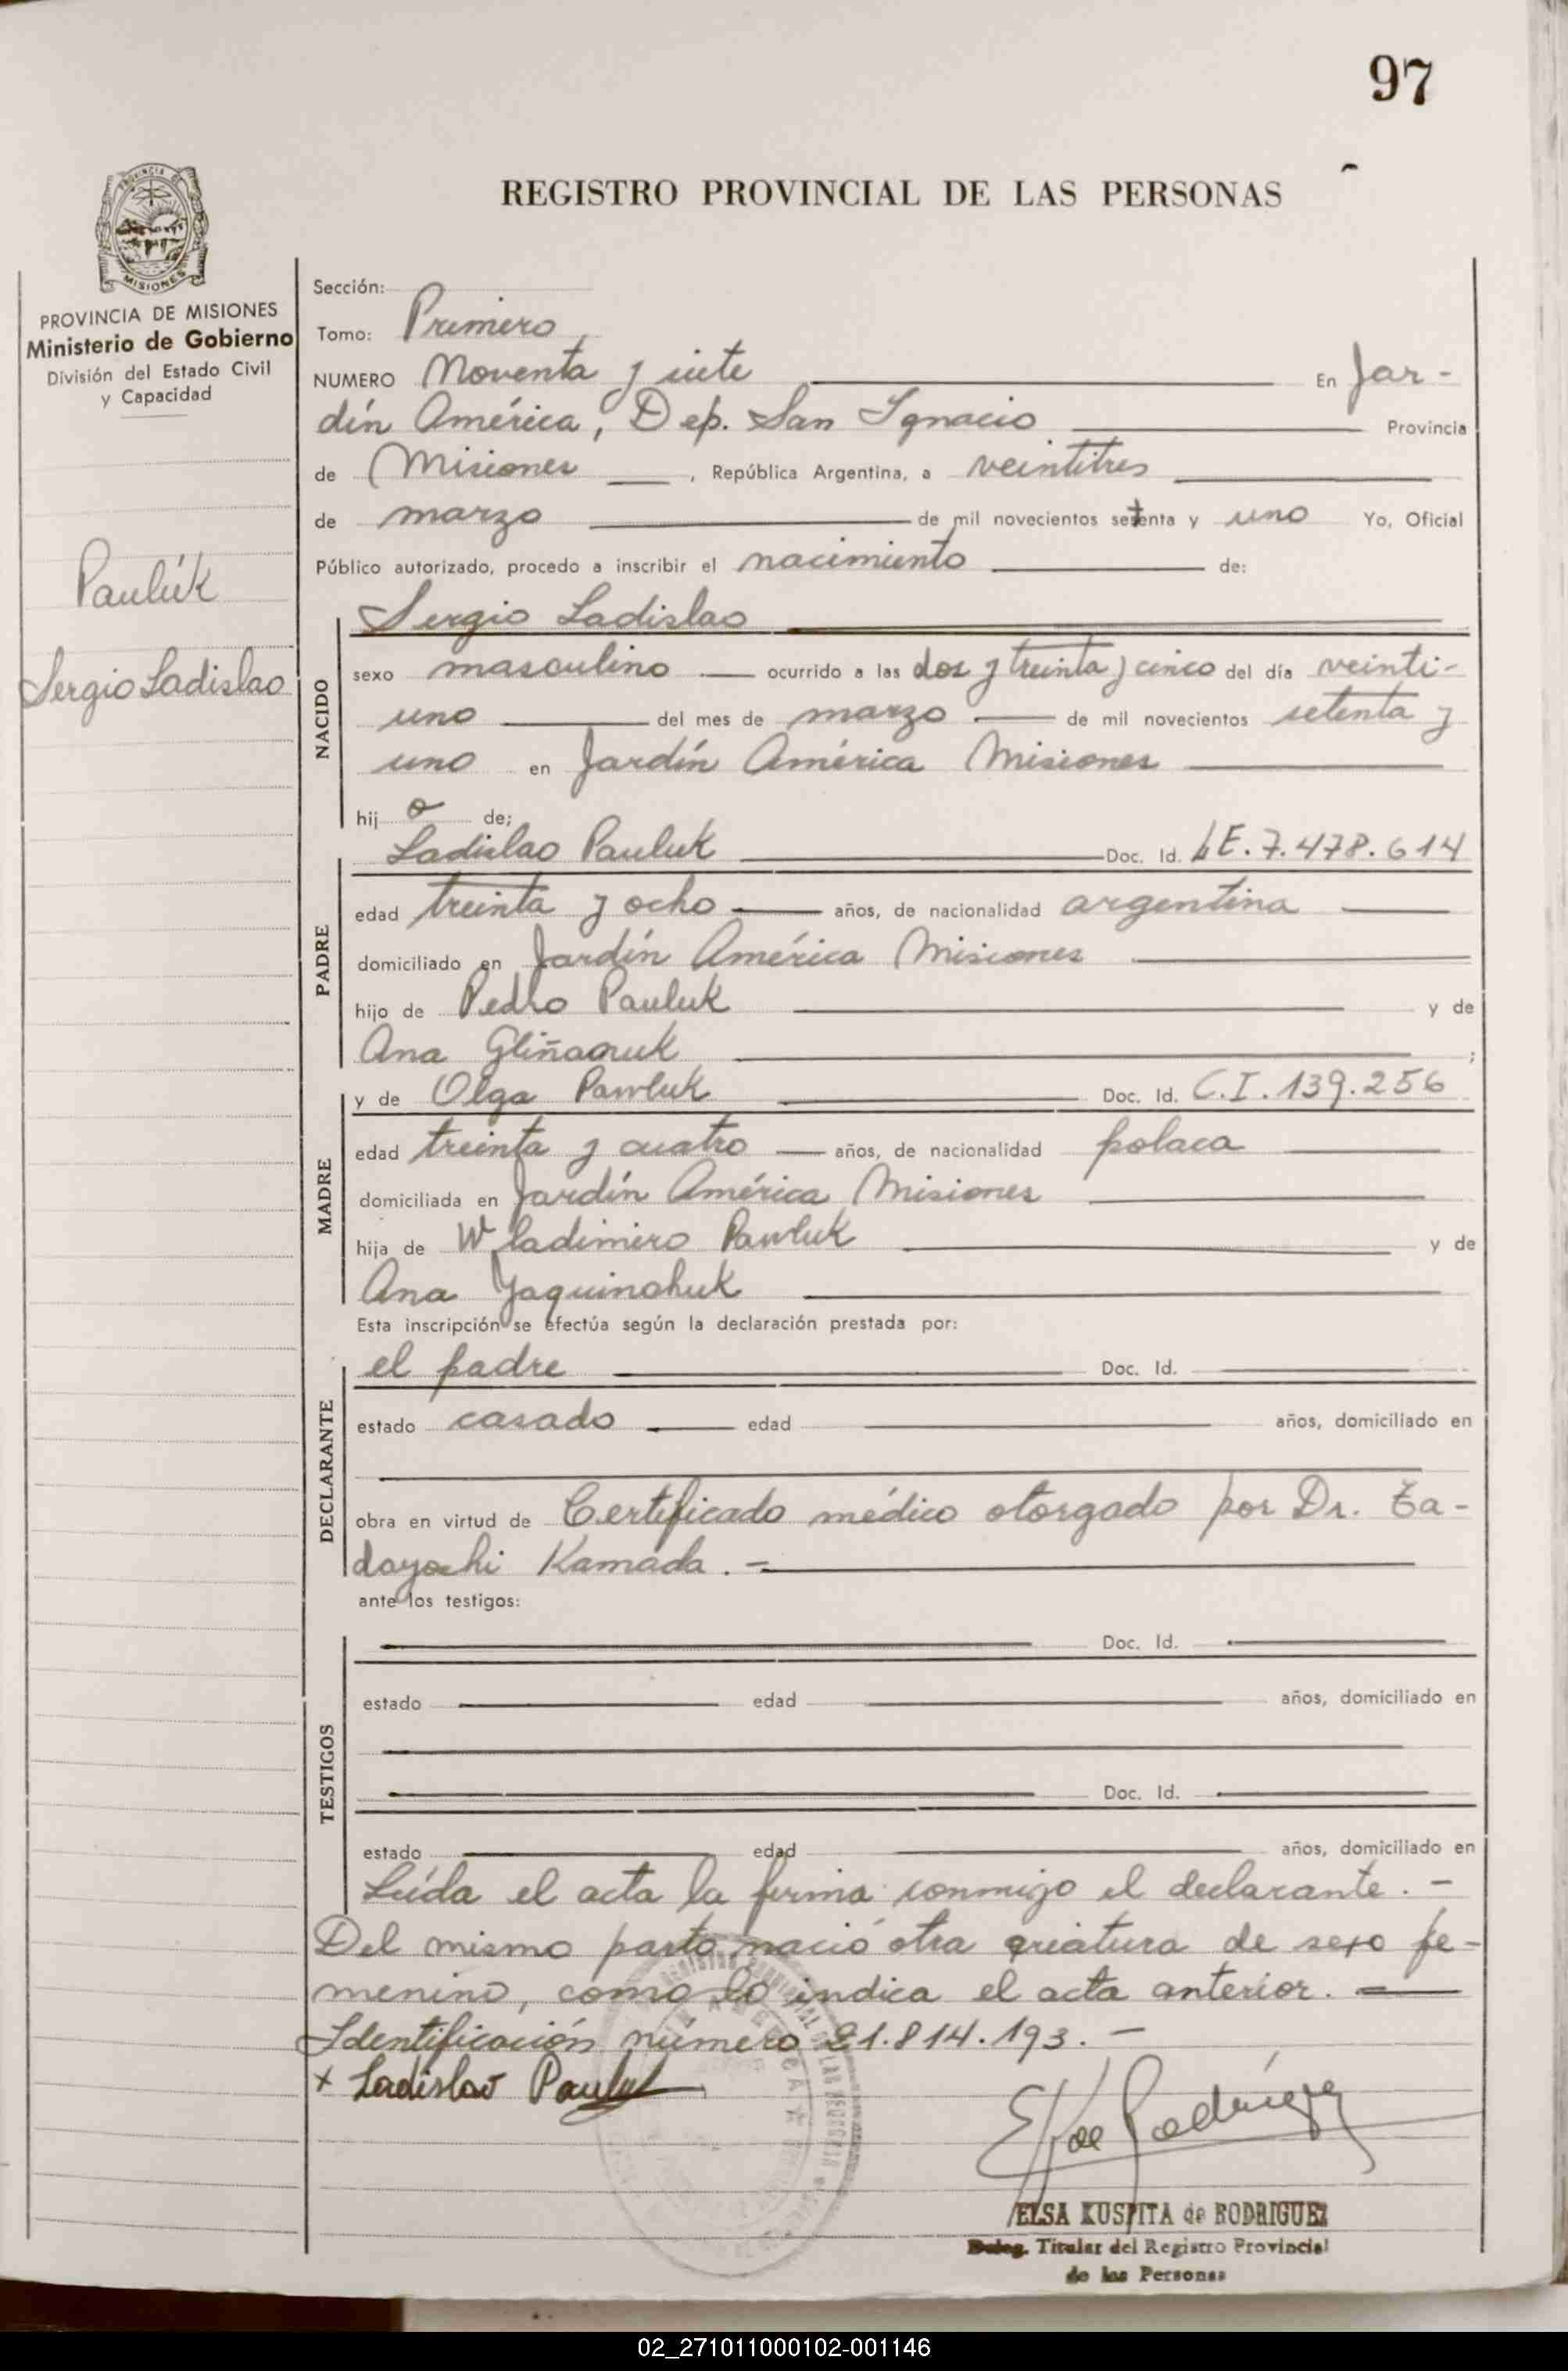 97
REGISTRO PROVINCIAL DE LAS PERSONAS
MISIONES
PROVINCIA DE MISIONES
Ministerio de Gobierno
División del Estado Civil
y Capacidad
Paulúk
Sergio Ladislao
Sección:
Tomo: Primero
NUMERO Noventa y siete En Jar-
dín América, Dep. San Ignacio Provincia
de Misiones, República Argentina, a veintitres
de marzo de mil novecientos setenta y uno Yo, Oficial
Público autorizado, procedo a inscribir el nacimiento de:
Sergio Ladislao
NACIDO
sexo masculino ocurrido a las dos y treinta y cinco del día veinti-
uno del mes de marzo de mil novecientos setenta y
uno en Jardín América Misiones
hijo de;
PADRE
Ladislao Pauluk Doc. Id. L.E. 7.478.614
edad treinta y ocho años, de nacionalidad argentina
domiciliado en Jardín América Misiones
hijo de Pedro Pauluk y de
Ana ;
MADRE
y de Olga Pawluk Doc. Id. C.I. 139.256
edad treinta y cuatro años, de nacionalidad polaca
domiciliada en Jardín América Misiones
hija de Wladimiro Pawluk y de
Ana Yaquinchuk
Esta inscripción se efectúa según la declaración prestada por:
DECLARANTE
el padre Doc. Id.
estado casado edad años, domiciliado en
obra en virtud de Certificado médico otorgado por Dr. Ta-
dayochi Kamada. -
ante los testigos:
TESTIGOS
Doc. Id.
estado edad años, domiciliado en
Doc. Id.
estado edad años, domiciliado en
Leída el acta la firma conmigo el declarante. -
Del mismo parto nació otra criatura de sexo fe-
menino, como lo indica el acta anterior. -
Identificación número 21.814.193. -
x Ladislao Pauluk
E K de Rodríguez
ELSA KUSPITA de RODRIGUEZ
Deleg. Titular del Registro Provincial
de las Personas
02_271011000102-001146